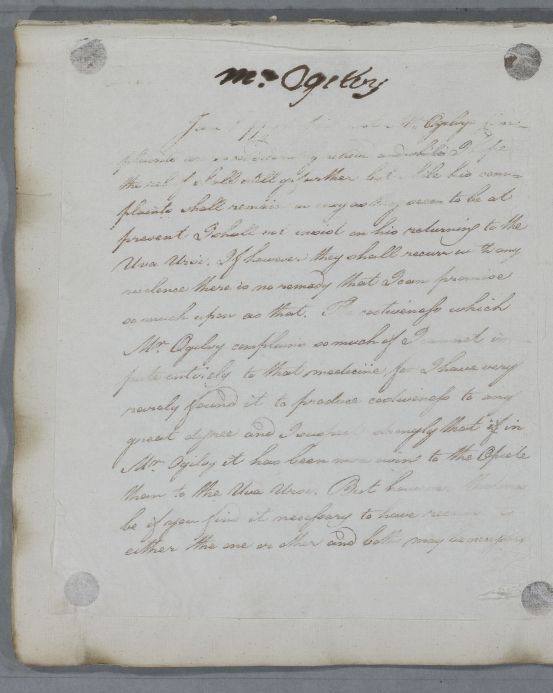 Mr. Ogilvy
I am happy to find that Mr. Ogilvy's Com=
plaints are considerably reliev'd and while I hope
the relief shall still go further but while his com=
plaints shall remain as easy as they seem to be at
present I shall not insist on his returning to the
Uva Ursi. If however they shall recur with any
violence there is no remedy that I can promise
so much upon as that. The costiveness which
Mr. Ogilvy complains so much of I cannot im
pute entirely to that medicine for I have very
rarely found it to produce costiveness to any
great degree and I suspect strongly that if in
Mr. Ogilvy it has been more owing to the Opiate
than to the Uva Ursi. But however
be if you find it necessary to have recourse to
either the one or other and both may be necessary